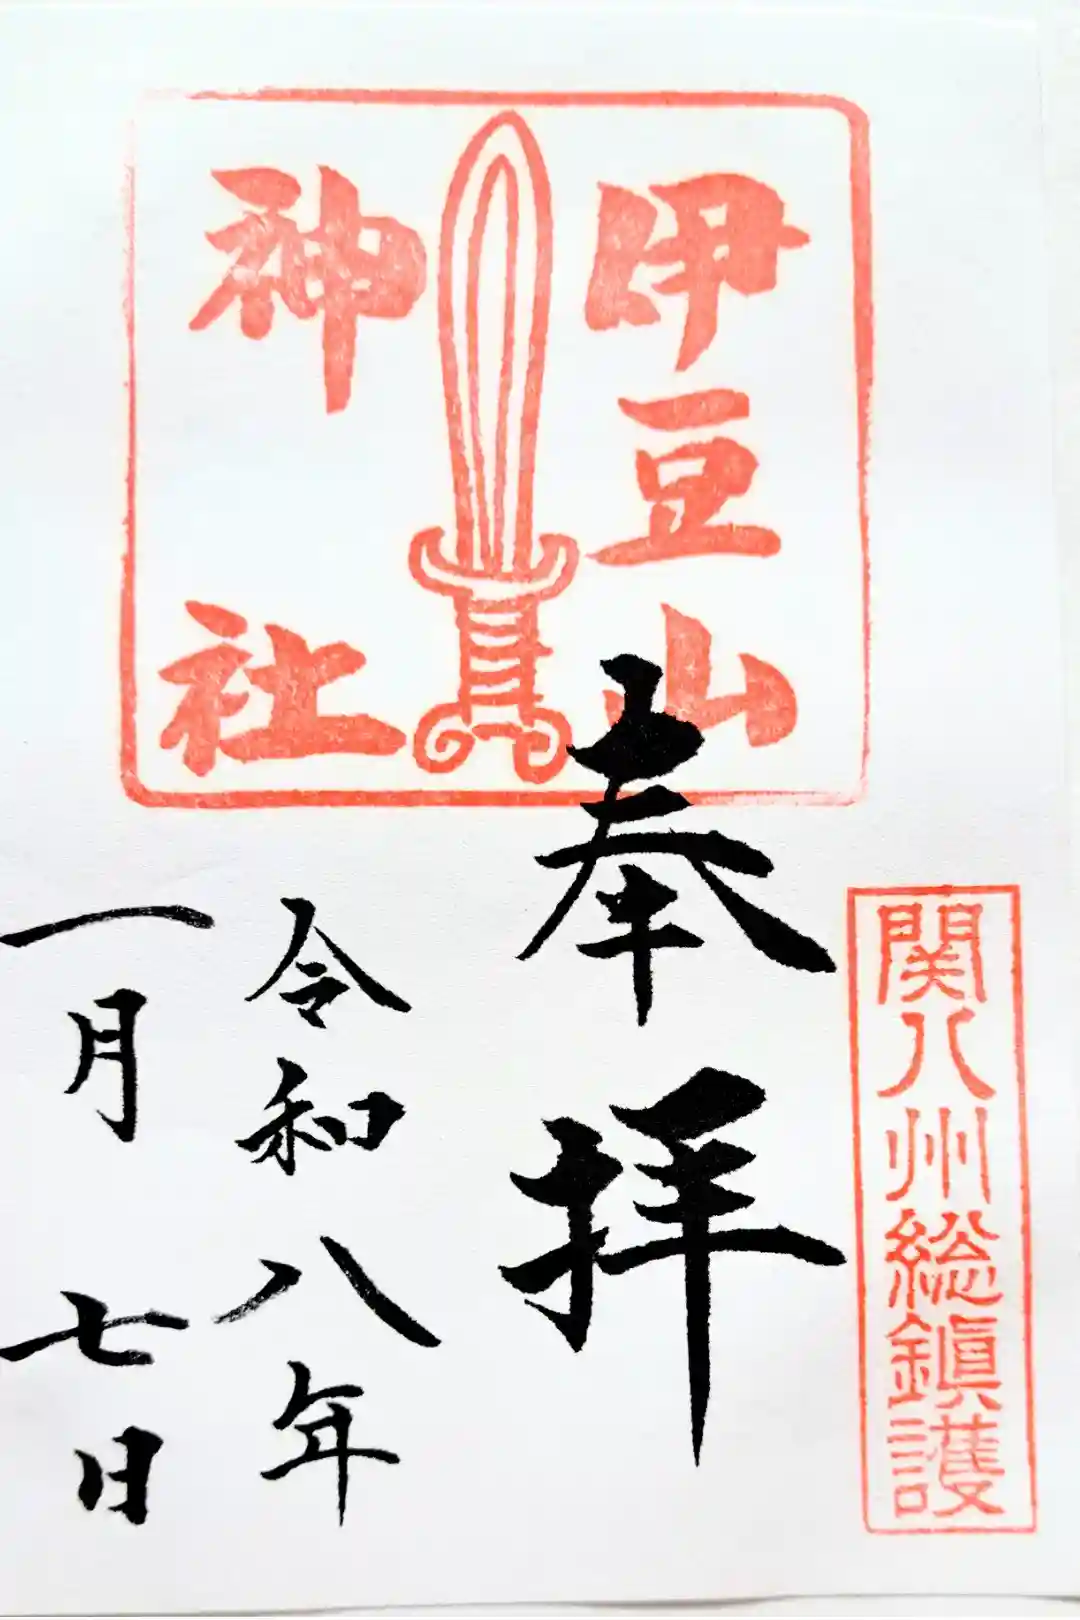 関八州総鎮護
伊豆山
神社
奉拝
令和八年
一月七日